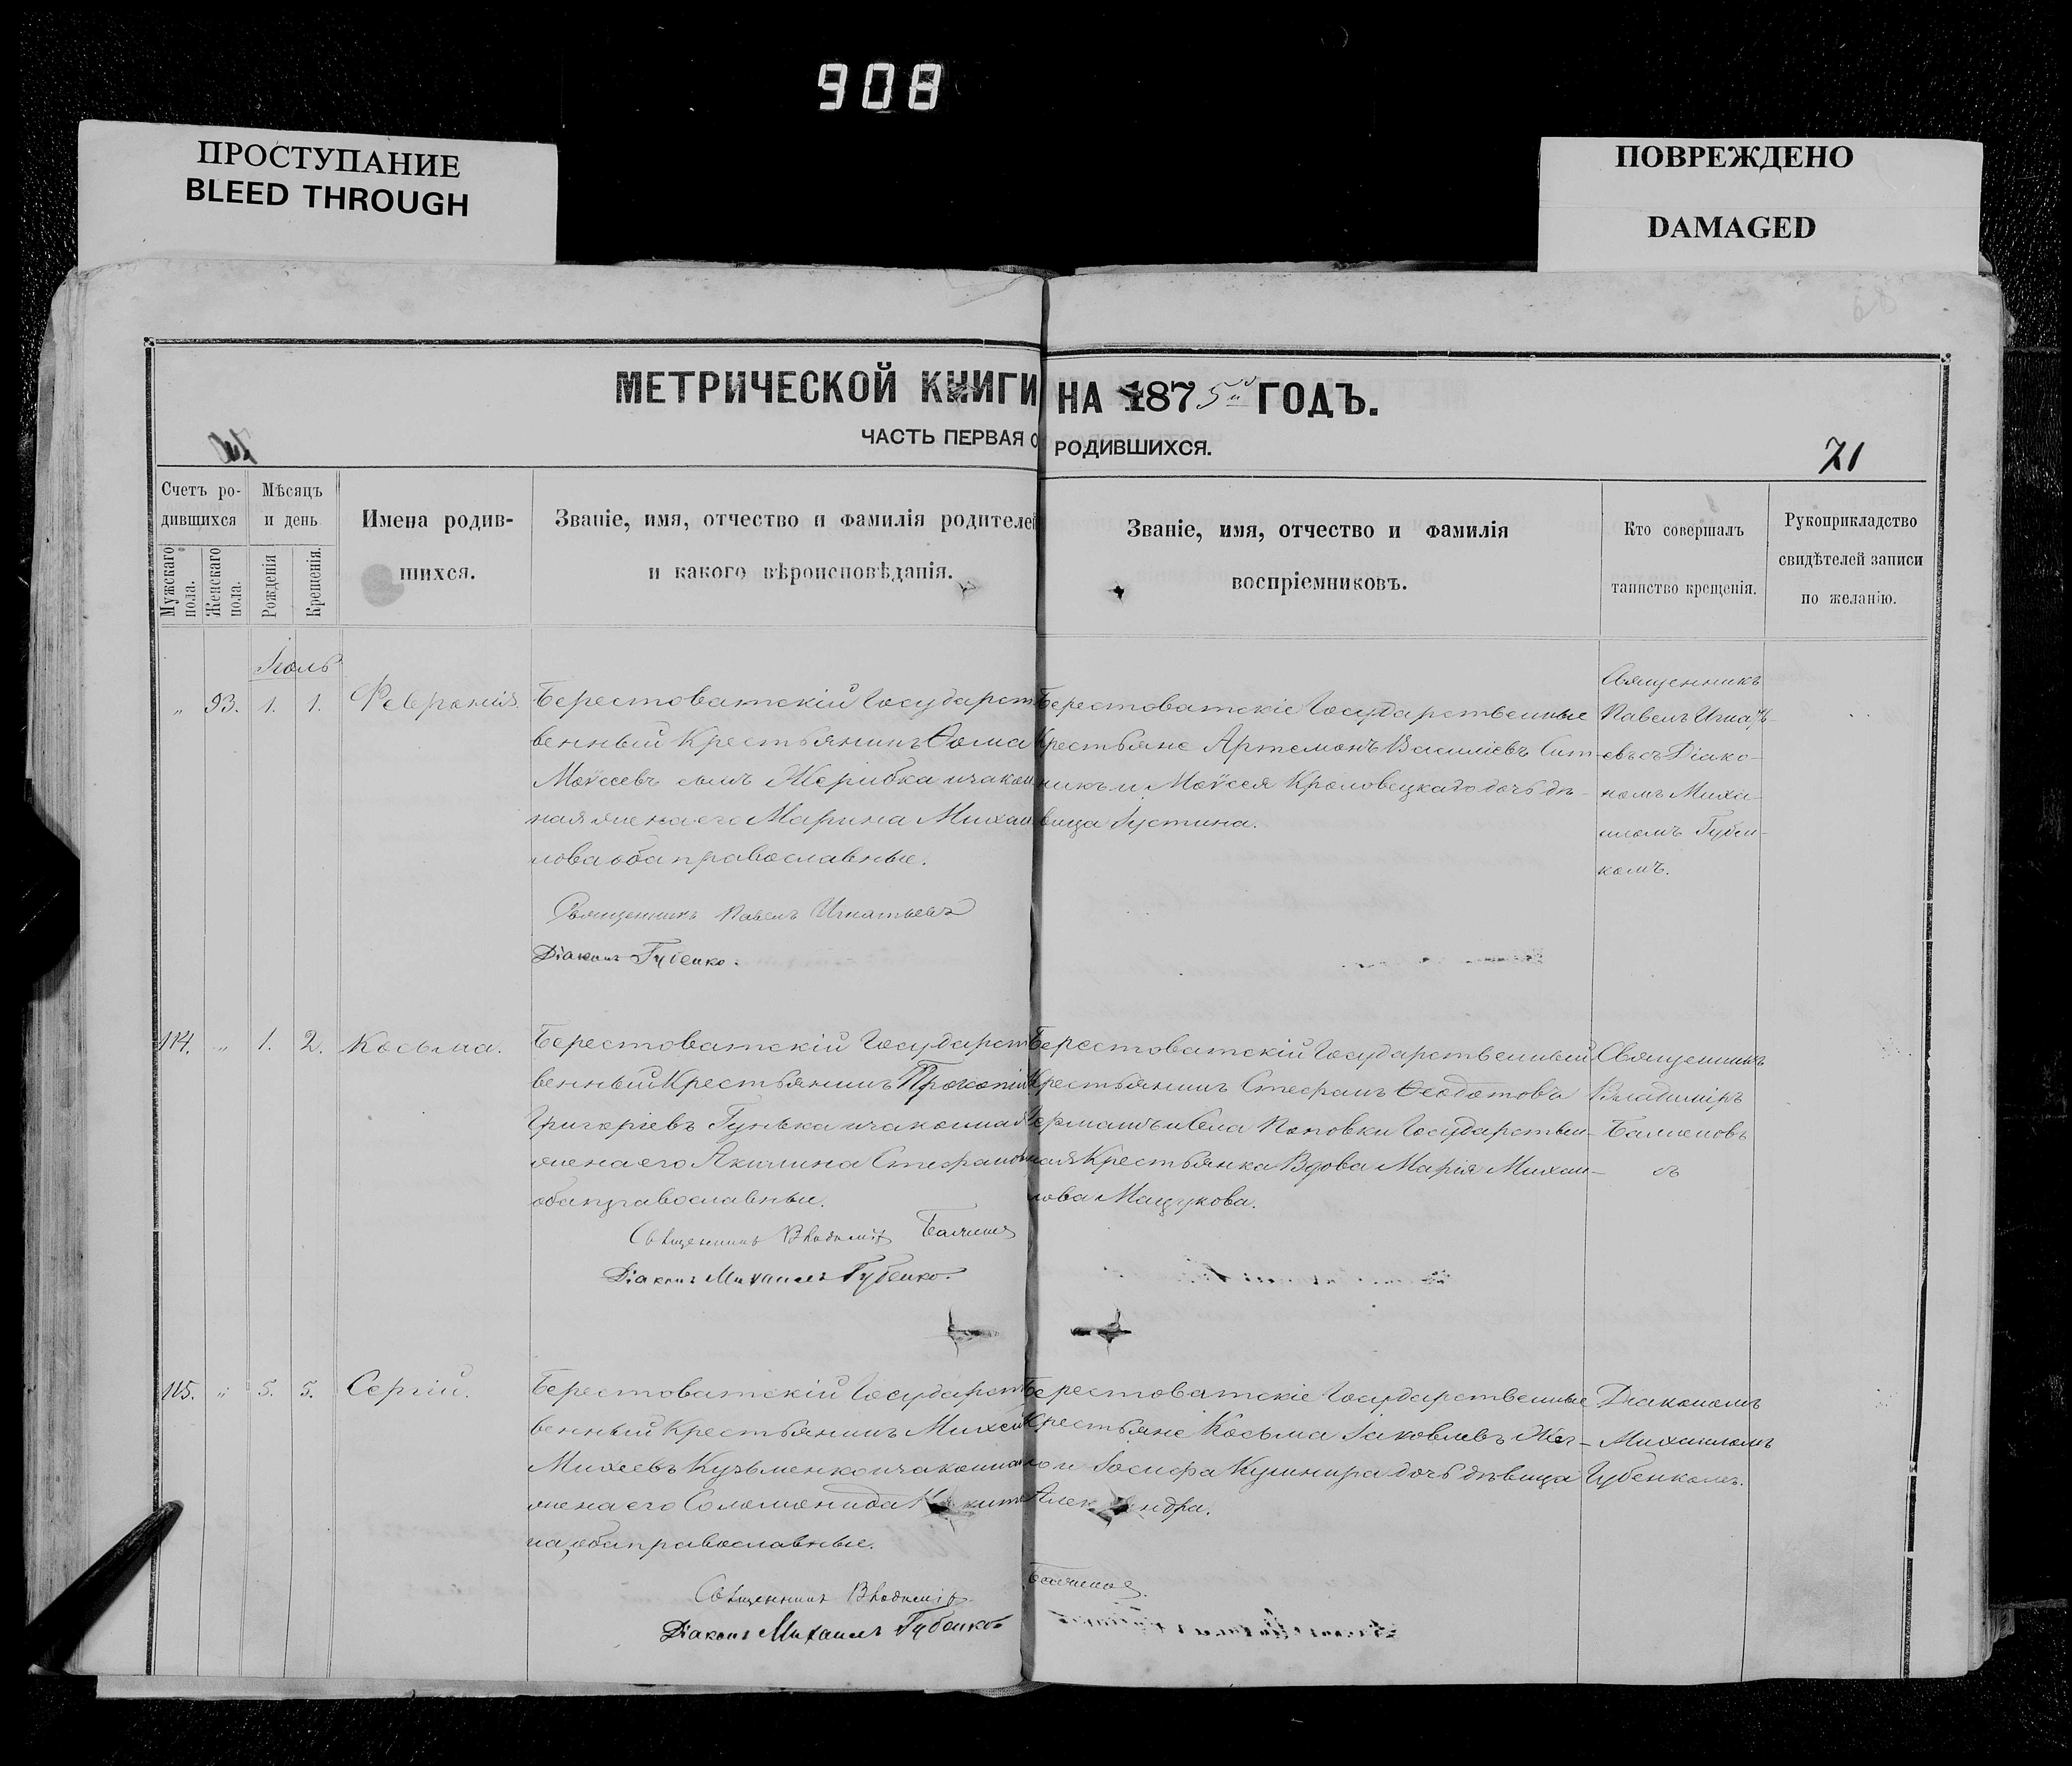 908
ПРОСТУПАНИЕ
BLEED THROUGH
ПОВРЕЖДЕНО
DAMAGED
МЕТРИЧЕСКОЙ КНИГИ НА 1875й ГОДЪ.
ЧАСТЬ ПЕРВАЯ О РОДИВШИХСЯ.
71
Счетъ ро-
дившихся
Мужскаго пола.
Женскаго пола.
Мѣсяцъ
и день
Рожденія
Крещенія.
Имена родив-
шихся.
Званіе, имя, отчество и фамилія родителей
и какого вѣроисповѣданія.
Званіе, имя, отчество и фамилія
воспріемниковъ.
Кто совершалъ
таинство крещенія.
Рукоприкладство
свидѣтелей записи
по желанію.
Іюль
„ 93. 1. 1. Февронія.
Берестоватскій Государст
венный Крестьянинъ Ѳома
Моѵсеевъ сынъ Жерибка и закон
ная жена его Марина Михаи
лова оба православные.
Священникъ Павелъ Игнатьевъ
Діаконъ Губенко.
Берестоватскіе Государственные
Крестьяне Артемонъ Василіевъ Сит-
никъ и Моѵсея Кроловецкаго дочь дѣ-
вица Іустина.
Священникъ
Павелъ Игнать-
евъ съ Діако-
номъ Миха-
иломъ Губен-
комъ.
114. „ 1. 2. Косьма.
Берестоватскій Государст
венный Крестьянинъ Прокопій
Григоріевъ Гунька и законная
жена его Акилина Стефанов
оба православные.
Священникъ Владиміръ
Діаконъ Михаилъ Губенко.
Берестоватскій Государственный
Крестьянинъ Стефанъ Ѳеодотовъ
и Села Поповки Государствен-
ная Крестьянка Вдова Марія Михаи-
лова Мащукова.
Священникъ
Владиміръ
115. „ 5. 5. Сергій.
Берестоватскій Государст
венный Крестьянинъ Михей
Михеевъ Кузьменко и законная
жена его Соломонида
на, оба православные.
Священникъ Владиміръ
Діаконъ Михаилъ Губенко
Берестоватскіе Государственные
Крестьяне Косьма Іаковлевъ
и Іосифа Кушнира дочь дѣвица
Александра.
Діакономъ
Михаиломъ
Губенкомъ.